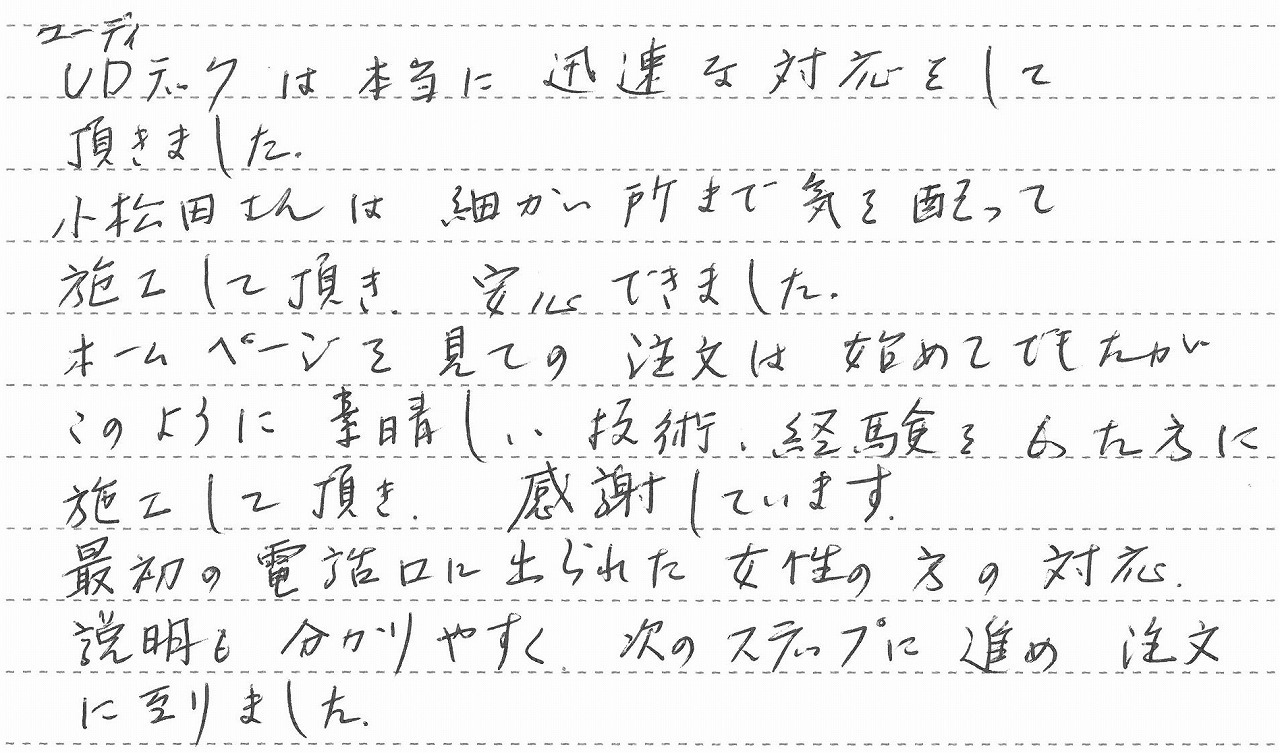 ユーディ
UDテックは本当に迅速な対応をして
頂きました.
小松田さんは細かい所まで気を配って
施工して頂き、安心できました.
ホームページを見ての注文は始めてでしたが
このように素晴しい技術、経験をもった方に
施工して頂き、感謝しています.
最初の電話口に出られた女性の方の対応、
説明も分かりやすく、次のステップに進め注文
に至りました.